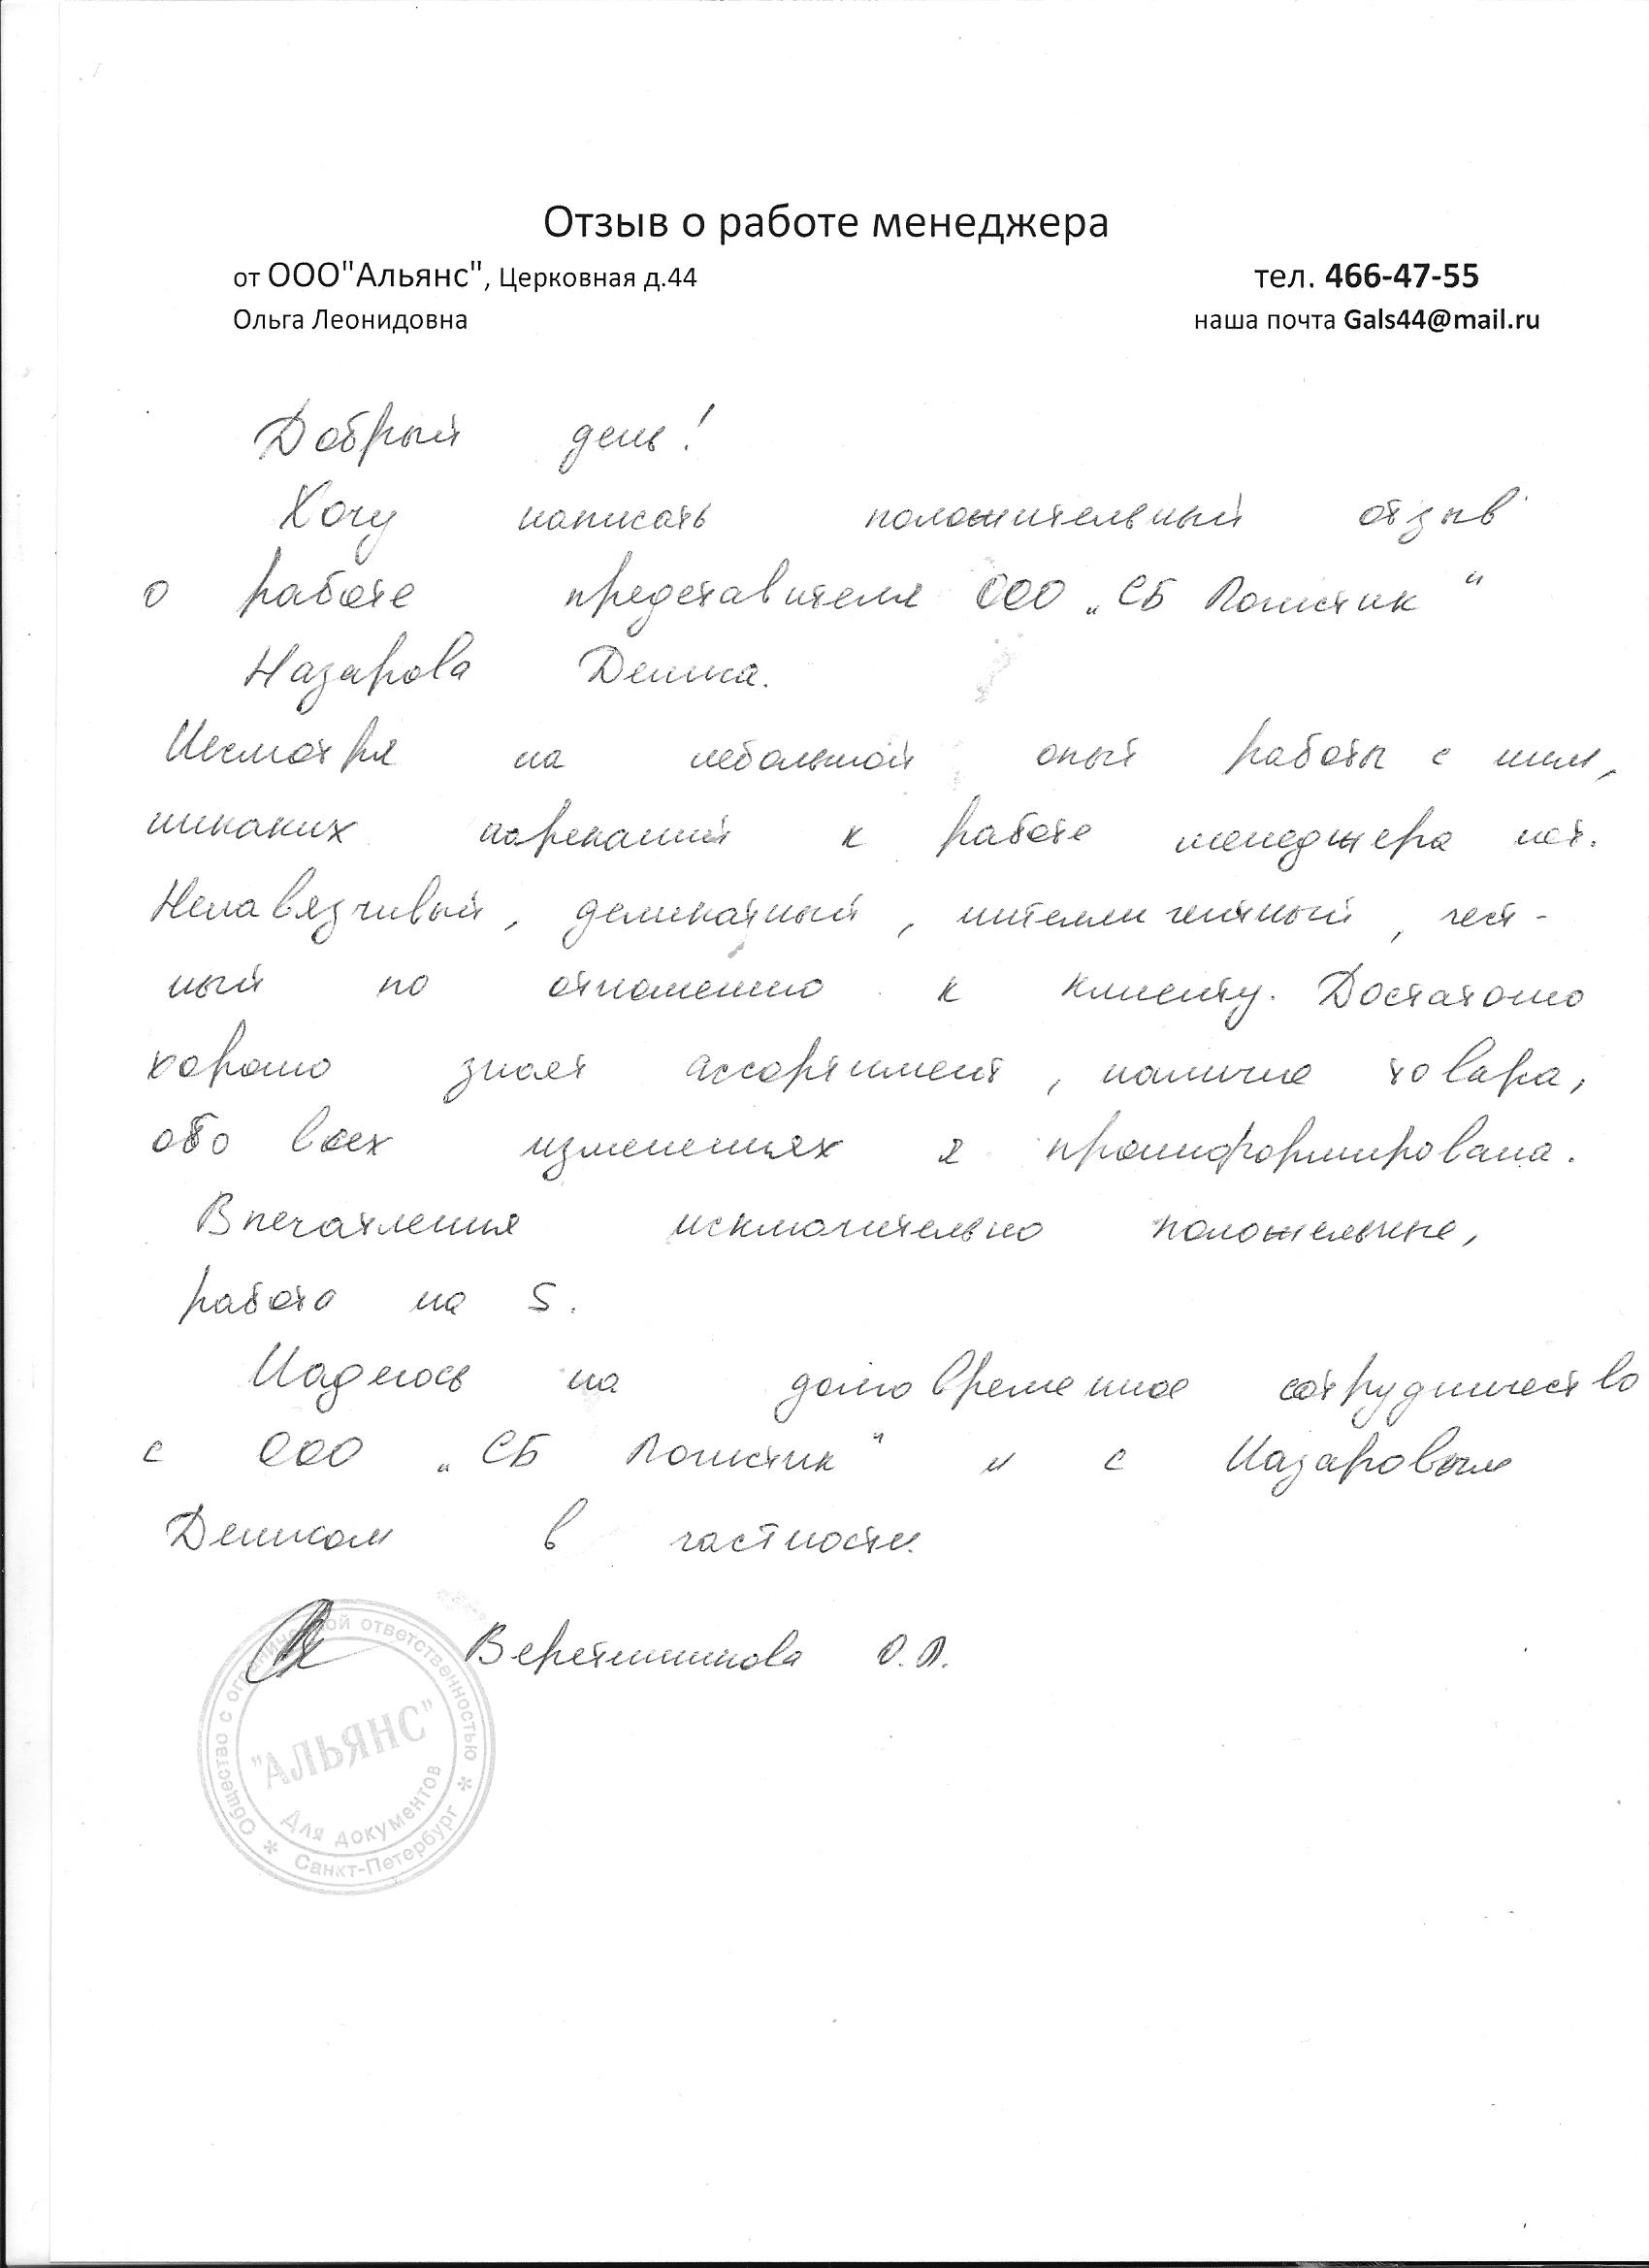 Отзыв о работе менеджера
от ООО"Альянс", Церковная д.44 тел. 466-47-55
Ольга Леонидовна наша почта Gals44@mail.ru
Добрый день!
Хочу написать положительный отзыв
о работе представителя ООО „СБ Логистик"
Назарова Дениса.
Несмотря на небольшой опыт работы с ним,
никаких нареканий к работе менеджера нет.
Ненавязчивый, деликатный, интеллигентный, чест-
ный по отношению к клиенту. Достаточно
хорошо знает ассортимент, наличие товара,
обо всех изменениях я проинформирована.
Впечатления исключительно положительные,
работа на 5.
Надеюсь на долговременное сотрудничество
с ООО „СБ Логистик" и с Назаровым
Денисом в частности.
Веретенникова О.Л.
Общество с ограниченной ответственностью
"АЛЬЯНС"
Для документов
* Санкт-Петербург *